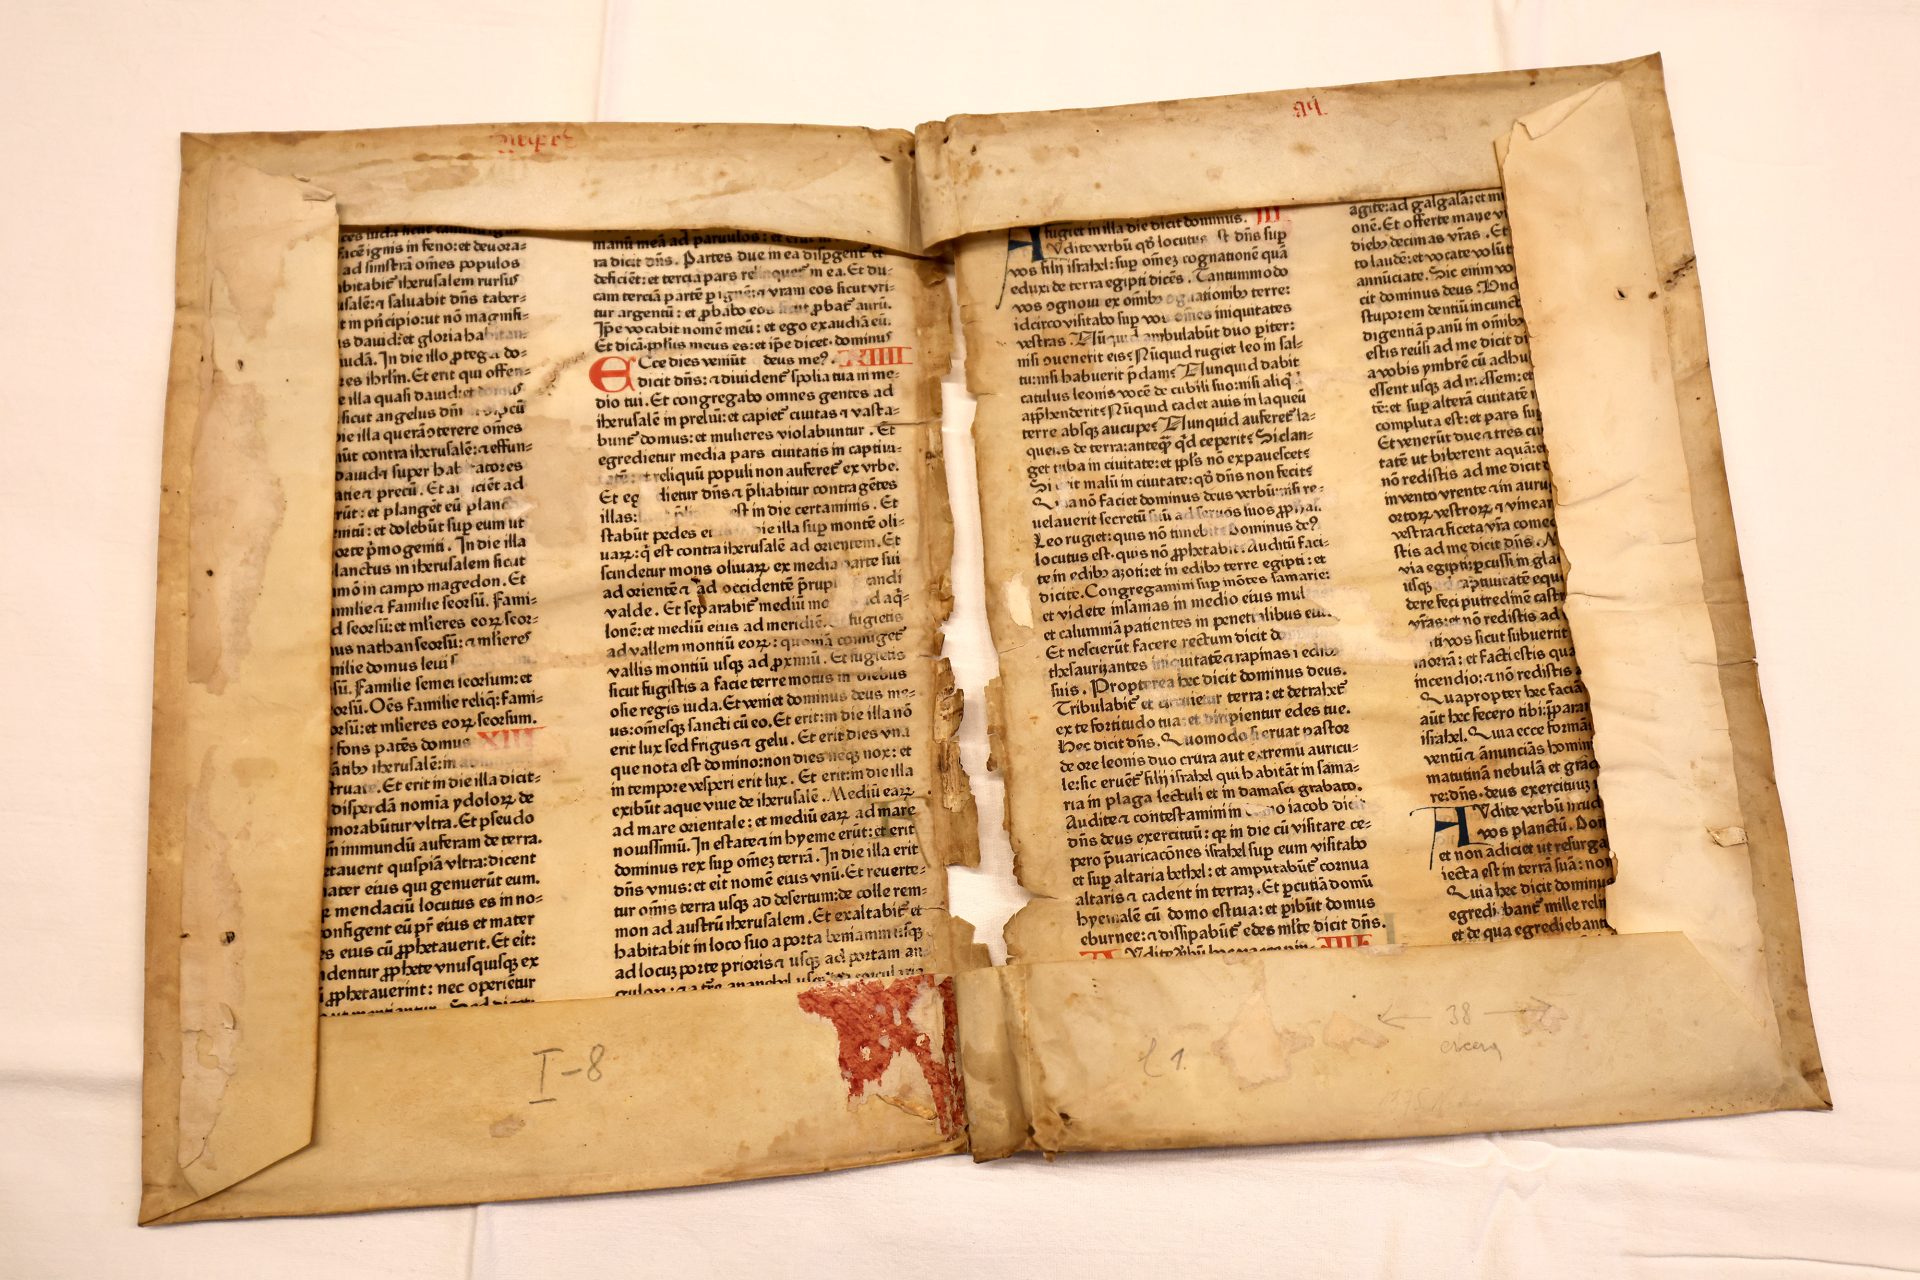 facē ignis in feno: et deuora-
ad sinistrā om̄es populos
abitabit iherusalem rursus
usalē: ⁊ saluabit dn̄s taber-
t in pn̄cipio: ut nō magnifi-
s dauid: et gloria habitan-
iudā. In die illo ꝓteget do-
res ihrlm̄. Et erit qui offen-
e illa quasi dauid: et domus
sicut angelus dn̄i
die illa querā ꝯterere om̄es
nūt contra iherusalē: ⁊ effun-
dauid ⁊ super habitatores
atie ⁊ precū. Et aspiciēt ad
rūt: et plangēt eū planc
nitū: et dolebūt sup eum ut
orte pͥmogeniti. In die illa
lanctus in iherusalem sicut
mō in campo magedon. Et
amilie ⁊ familie seorsū. Fami-
d seorsū: et mlieres eoꝝ seor-
us nathan seorsū: ⁊ mlieres
milie domus leui
sū. Familie semei seorsum: et
orsū. Oēs familie reliq̄: fami-
orsū: et mlieres eoꝝ seorsum.
fons patēs domus XIII
ātibꝫ iherusalē: in
Et erit in die illa dicit-
disperdā nomīa ydoloꝝ de
morabūtur vltra. Et pseudo
m immundū auferam de terra.
etauerit quispiā vltra: dicent
ater eius qui genuerūt eum.
mendaciū locutus es in no-
onfigent eū pr̄ eius et mater
s eius cū ꝓphetauerit. Et eīt:
dentur ꝓphete vnusquisque ex
ꝓphetauerint: nec operiētur
manū meā ad paruulos: et erūt in
ra dicit dn̄s. Partes due in ea disp̄gent et
deficiēt: et tercia pars relinquet in ea. Et du-
cam terciā partē p ignē: ⁊ vram eos sicut vri-
tur argentū: et ꝓbabo eos sicut ꝓbat aurū.
Ip̄e vocabit nomē meū: et ego exaudiā eū.
Et dicā: ppl̄us meus es: et ip̄e dicet: dominus
Ecce dies veniūt deus meꝰ. XIIII
dicit dn̄s: ⁊ diuident spolia tua in me-
dio tui. Et congregabo omnes gentes ad
iherusalē in preliū: et capiet ciuitas ⁊ vasta-
bunt domus: et mulieres violabuntur. Et
egredietur media pars ciuitatis in captiui-
tatē: et reliquū populi non auferet ex vrbe.
Et egredietur dn̄s ⁊ p̄liabitur contra gētes
illas: est in die certaminis. Et
stabūt pedes ei die illa sup montē oli-
uaꝝ: q̄ est contra iherusalē ad orientem. Et
scindetur mons oliuaꝝ ex media parte sui
ad orientē ⁊ ad occidentē p̄rupt grandi
valde. Et separabit mediū mo ad aq̄-
lonē: et mediū eius ad meridiē. Et fugietis
ad vallem montiū eoꝝ: quoniā coniuget
vallis montiū usqꝫ ad ꝓximū. Et fugietis
sicut fugistis a facie terremotus in diebus
osie regis iuda. Et veniet dominus deus me-
us: om̄esqꝫ sancti cū eo. Et erit: in die illa nō
erit lux sed frigus ⁊ gelu. Et erit dies vna
que nota est domino: non dies neqꝫ nox: et
in tempore vesperi erit lux. Et erit: in die illa
exibūt aque viue de iherusalē. Mediū eaꝝ
ad mare orientale: et mediū eaꝝ ad mare
nouissimū. In estate ⁊ in hyeme erūt: et erit
dominus rex sup om̄eꝫ terrā. In die illa erit
dn̄s vnus: et eīt nomē eius vnū. Et reuerte-
tur om̄is terra usqꝫ ad desertum: de colle rem-
mon ad austrū iherusalem. Et exaltabit et
habitabit in loco suo a porta beniamin usqꝫ
ad locuꝫ porte prioris ⁊ usqꝫ ad portam an-
I-8
fugiet in illa die dicit dominus. III
Audite verbū qd̄ locutus est dn̄s sup
vos filij israhel: sup om̄eꝫ cognationē quā
eduxi de terra egipti dicēs. Tantummodo
vos ꝯgnoui ex om̄ibꝫ cognationibꝫ terre:
idcirco visitabo sup vos om̄es iniquitates
vestras. Nūquid ambulabūt duo pariter:
nisi ꝯuenerit eis? Nūquid rugiet leo in sal-
tu: nisi habuerit p̄dam? Nunquid dabit
catulus leonis vocē de cubili suo: nisi aliqͥd
app̄henderit? Nūquid cadet auis in laqueū
terre absqꝫ aucupe? Nunquid auferet la-
queus de terra: anteqꝫ qͥd ceperit? Si clan-
get tuba in ciuitate: et ppl̄s nō expauescet?
Si erit malū in ciuitate: qd̄ dn̄s non fecit?
Quia nō faciet dominus deus verbū: nisi re-
uelauerit secretū suū ad seruos suos ꝓphas.
Leo rugiet: quis nō timebit? Dominus deꝰ
locutus est: quis nō ꝓphetabit? Auditū faci-
te in edibꝫ azoti: et in edibꝫ terre egipti: et
dicite. Congregamini sup mōtes samarie:
et videte insanias in medio eius mul
et calumniā patientes in penetralibus eiu
Et nescierūt facere rectum dicit do
thesaurizantes iniquitatē ⁊ rapinas i edibꝫ
suis. Propterea hec dicit dominus deus.
Tribulabit et circuietur terra: et detrahet
ex te fortitudo tua: et diripientur edes tue.
Hec dicit dn̄s. Quomodo si eruat pastor
de ore leonis duo crura aut extremū auricu-
le: sic eruēt filij israhel qui habitāt in sama-
ria in plaga lectuli et in damasci grabato.
Audite ⁊ contestamini in domo iacob dicit
dn̄s deus exercituū: qꝛ in die cū visitare ce-
pero p̄uaricacōnes israhel sup eum visitabo
et sup altaria bethel: et amputabūt cornua
altaris ⁊ cadent in terraꝫ. Et ꝑcutiā domū
hyemalē cū domo estiua: et ꝑibūt domus
eburnee: ⁊ dissipabūt edes ml̄te dicit dn̄s.
IIII
agite: ad galgalā: et m
onē. Et offerte mane v
diebꝫ decimas vr̄as. Et
to laudē: et vocate volūt
annūciate. Sic enim vo
cit dominus deus. Vnd
stuporem dentiū in cunct
digentiā panū in om̄ibꝫ
estis reūsi ad me dicit di
a vobis ymbrē cū adhu
essent usqꝫ ad messem: et
tē: et sup alterā ciuitatē
compluta est: et pars sup
Et venerūt due ⁊ tres ciu
tatē ut biberent aquā: et
nō redistis ad me dicit
in vento vrente ⁊ in auru
ortoꝝ vestroꝝ ⁊ vinear
vestra ⁊ ficeta vr̄a comed
stis ad me dicit dn̄s. M
via egipti: ꝑcussi in gla
usqꝫ ad captiuitatē equ
dere feci putredinē castr
vr̄as: et nō redistis ad
vos sicut subuertit
morrā: et facti estis qua
incendio: ⁊ nō redistis
Quapropter hec faciā
aūt hec fecero tibi: p̄para
israhel. Quia ecce formā
ventū ⁊ ānuncias homin
matutinā nebulā et grad
re: dn̄s deus exercituū
Audite verbū istud
vos planctū. Dom
et non adiciet ut resurga
iecta est in terrā suā: non
Quia hec dicit dominus
egrediebant mille relin
et de qua egrediebant
38